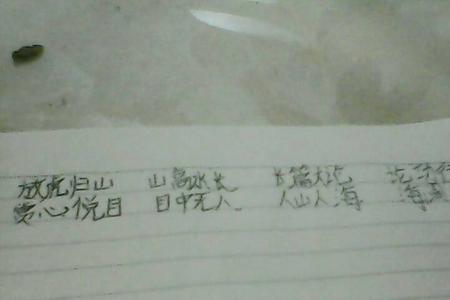 放虎归山 山高水长 长篇大论
赏心悦目 目中无人 人山人海 海